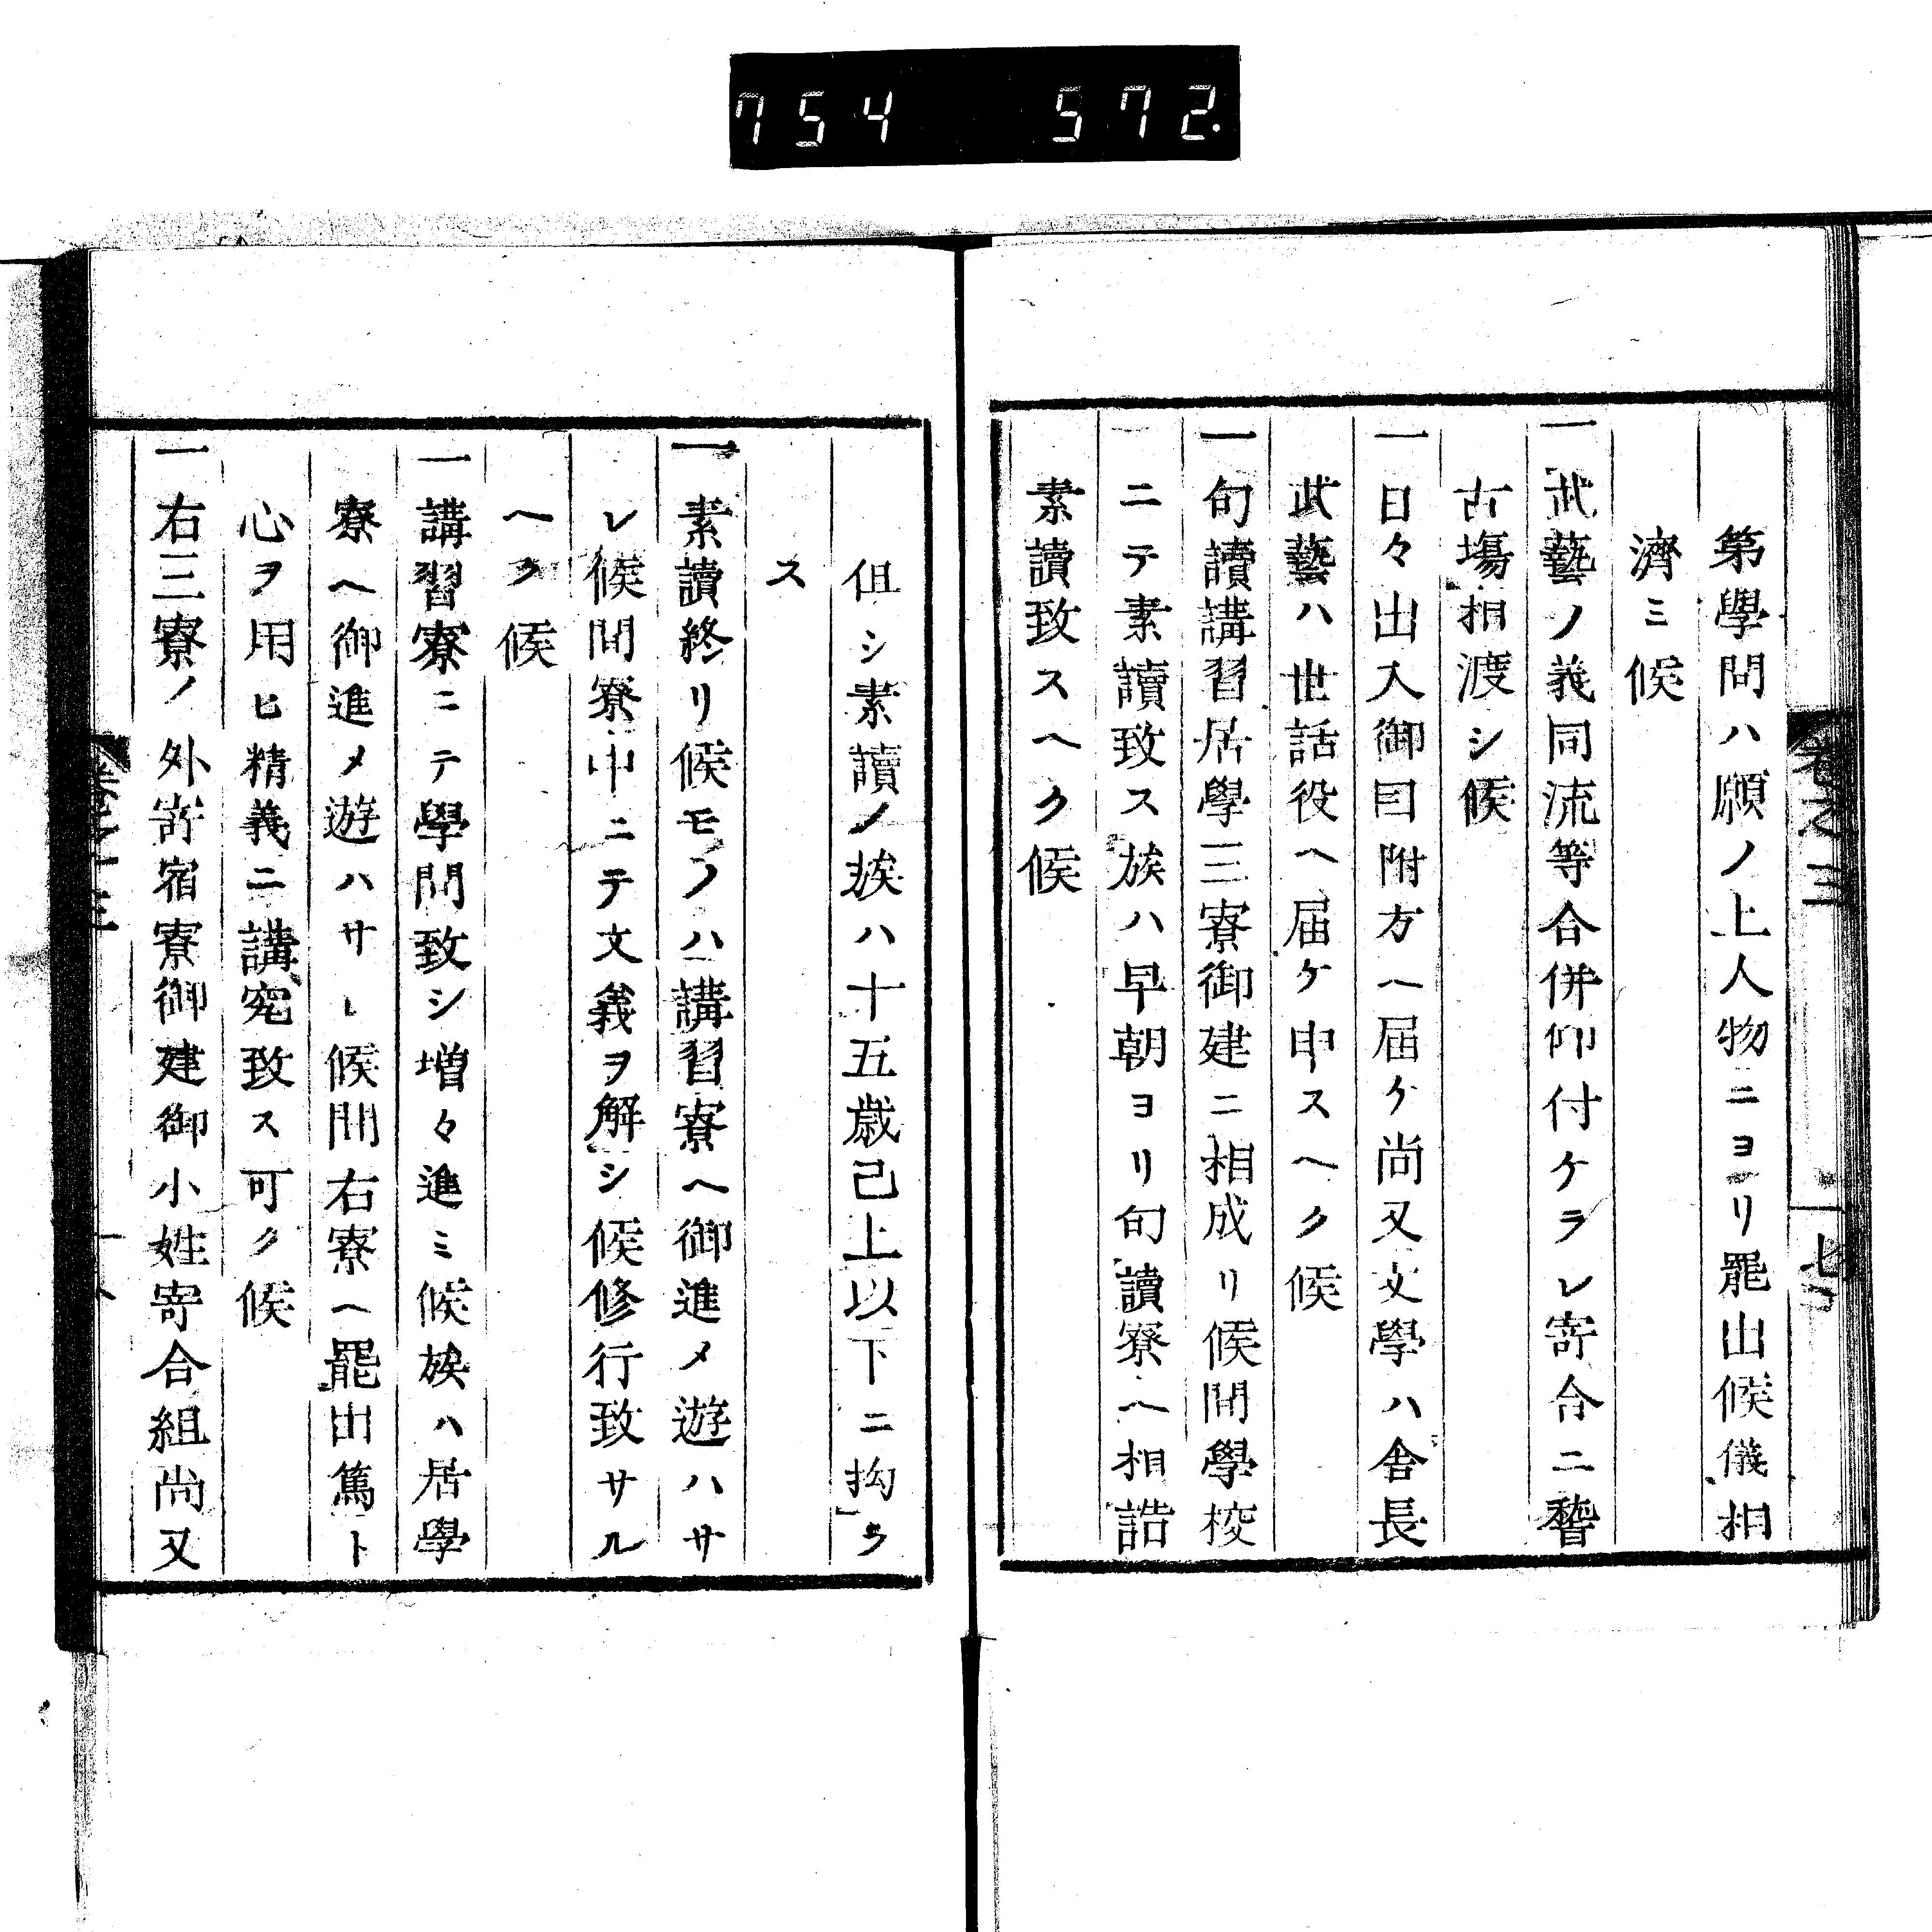 754 572.
卷之三
七
第學問ハ願ノ上人物ニヨリ罷出候儀相
濟ミ候
一武藝ノ義同流等合併仰付ケラレ寄合ニ稽
古塲相渡シ候
一日々出入御目附方ヘ届ケ尚又文學ハ舎長
武藝ハ世話役ヘ届ケ申スヘク候
一句讀講習居學三寮御建ニ相成リ候間學校
ニテ素讀致ス族ハ早朝ヨリ句讀寮ヘ相詰
素讀致スヘク候
伹シ素讀ノ族ハ十五歳己上以下ニ拘ラ
ス
一素讀終リ候モノハ講習寮ヘ御進メ遊ハサ
レ候間寮中ニテ文義ヲ解シ候修行致サル
ヘク候
一講習寮ニテ學問致シ増々進ミ候族ハ居學
寮ヘ御進メ遊ハサレ候間右寮ヘ罷出篤ト
心ヲ用ヒ精義ニ講究致ス可ク候
一右三寮ノ外寄宿寮御建御小姓寄合組尚又